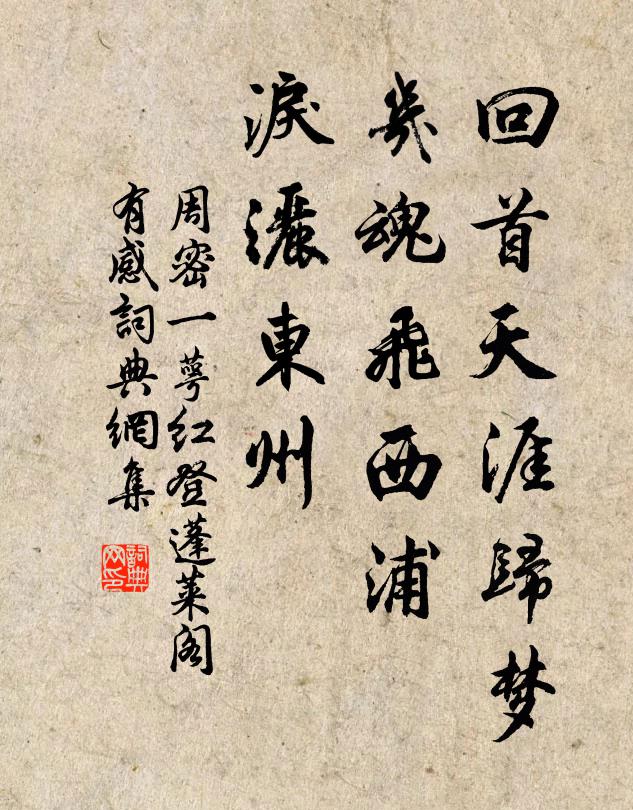 回首天涯歸梦
幾魂飛西浦
淚灑東州
周密一萼紅登蓬萊阁
有感詞典網集
詞典
网印